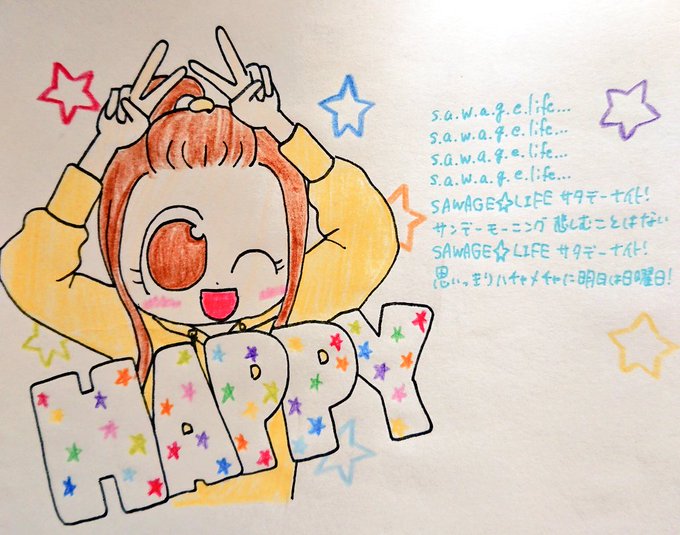 HAPPY
s.a.w.a.g.e.life...
s.a.w.a.g.e.life...
s.a.w.a.g.e.life...
s.a.w.a.g.e.life...
SAWAGE☆LIFE サタデーナイト!
サンデーモーニング 悲しむことはない
SAWAGE☆LIFE サタデーナイト!
思いっきりハチャメチャに明日は日曜日!